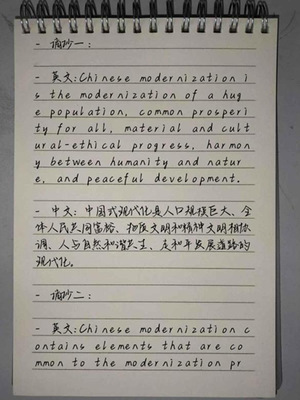 - 摘抄一：
- 英文:Chinese modernization i
s the modernization of a hug
e population, common prosperi
ty for all, material and cult
ural-ethical progress, harmon
y between humanity and natur
e, and peaceful development.
- 中文: 中国式现代化是人口规模巨大、全
体人民共同富裕、物质文明和精神文明相协
调、人与自然和谐共生、走和平发展道路的
现代化。
- 摘抄二：
- 英文:Chinese modernization c
ontains elements that are co
mmon to the modernization pr